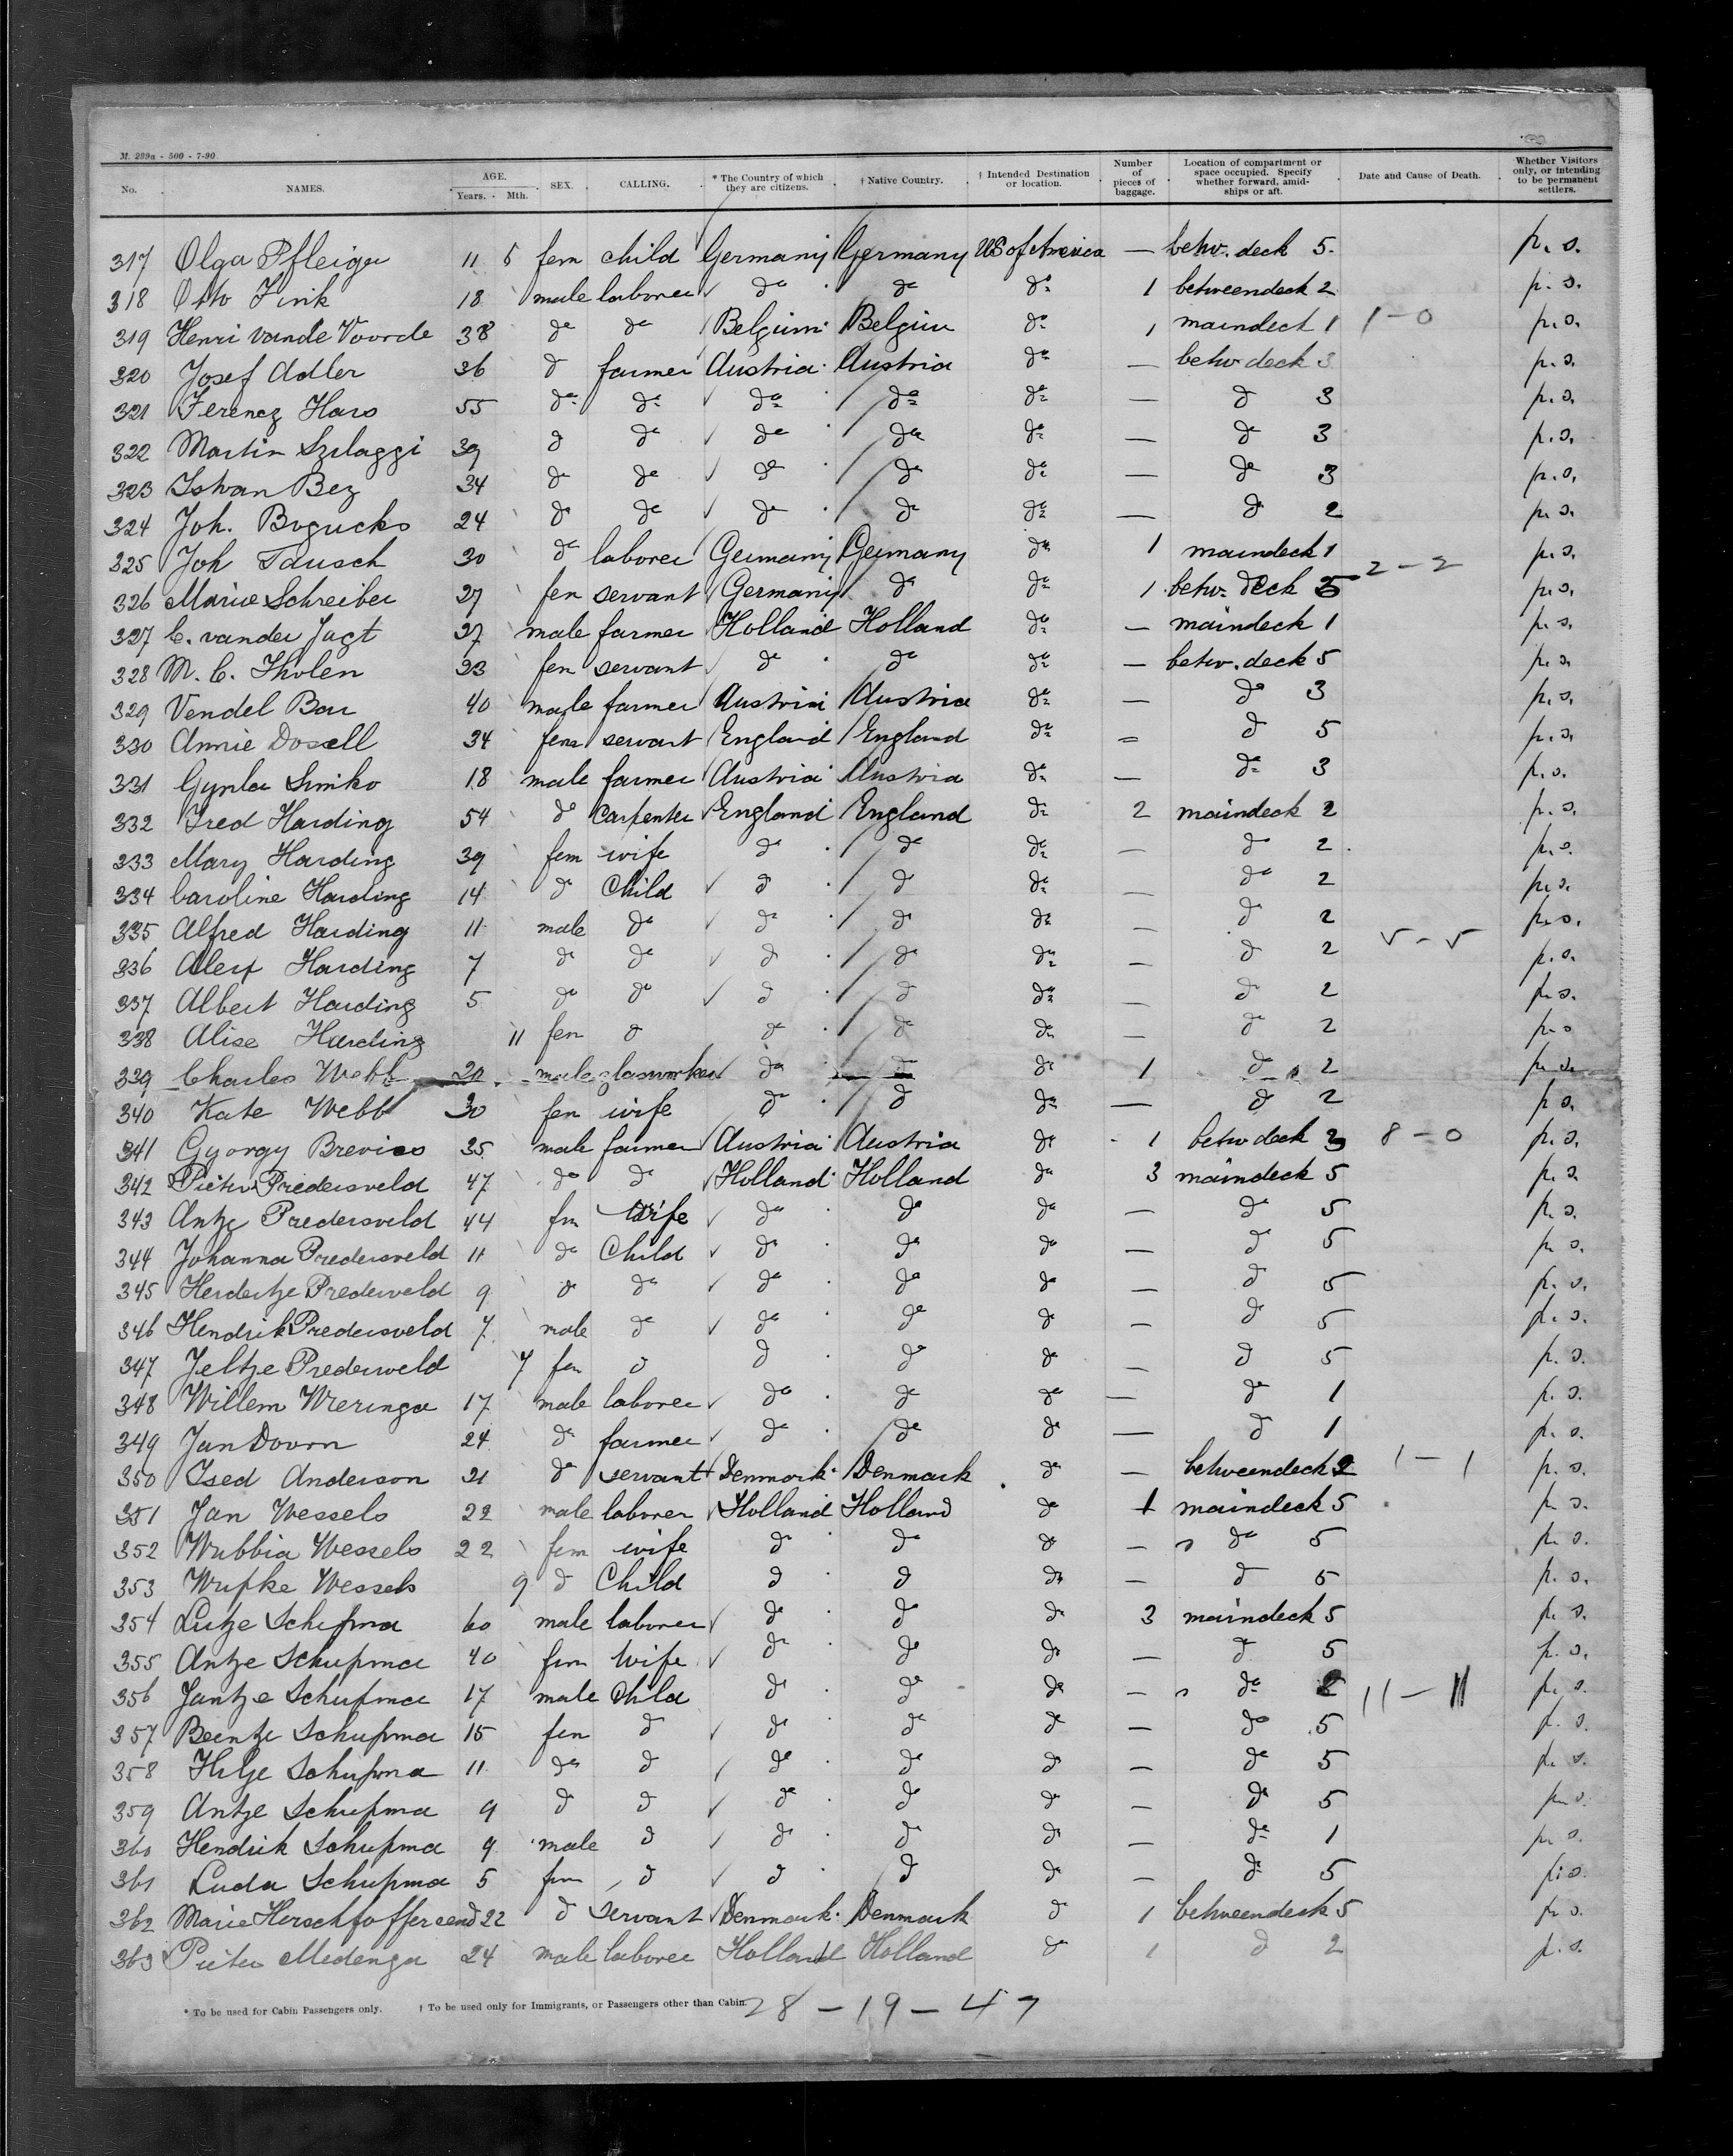 M. 289a - 500 - 7-90
No. NAMES. AGE. Years. Mth. SEX. CALLING. * The Country of which they are citizens. † Native Country. † Intended Destination or location. Number of pieces of baggage. Location of compartment or space occupied. Specify whether forward, amidships or aft. Date and Cause of Death. Whether Visitors only, or intending to be permanent settlers.
317 Olga Pfleiger 11 5 fem child Germany Germany US of America — betw. deck 5. p. s.
318 Otto Fink 18 male laborer do do do 1 betweendeck 2 p. s.
319 Henri vande Voorde 38 do do Belgium Belgium do 1 maindeck 1 1 - 0 p. s.
320 Josef Adler 36 do farmer Austria Austria do — betw deck 3 p. s.
321 Ferencz Haro 55 do do do do do — do 3 p. s.
322 Martin Szilaggi 39 do do do do do — do 3 p. s.
323 Istvan Bez 34 do do do do do — do 3 p. s.
324 Joh. Bogucko 24 do do do do do — do 2 p. s.
325 Joh Tausch 30 do laborer Germany Germany do 1 maindeck 1 p. s.
326 Marie Schreiber 27 fem servant Germany do do 1 betw. deck 5 2 - 2 p. s.
327 C. vander Jagt 27 male farmer Holland Holland do — maindeck 1 p. s.
328 M. C. Tholen 23 fem servant do do do — betw. deck 5 p. s.
329 Vendel Bar 40 male farmer Austria Austria do — do 3 p. s.
330 Annie Dosell 34 fem servant England England do = do 5 p. s.
331 Gyula Simko 18 male farmer Austria Austria do — do 3 p. s.
332 Fred Harding 54 do Carpenter England England do 2 maindeck 2 p. s.
333 Mary Harding 39 fem wife do do do — do 2 p. s.
334 Caroline Harding 14 do Child do do do — do 2 p. s.
335 Alfred Harding 11 male do do do do — do 2 p. s.
336 Alex Harding 7 do do do do do — do 2 5 - 5 p. s.
337 Albert Harding 5 do do do do do — do 2 p. s.
338 Alise Harding 11 fem do do do do — do 2 p. s.
339 Charles Webb 20 male glasworker do do do 1 do 2 p. s.
340 Kate Webb 30 fem wife do do do — do 2 p. s.
341 Gyorgy Brevico 35 male farmer Austria Austria do 1 betw deck 3 8 - 0 p. s.
342 Pieter Predersveld 47 do do Holland Holland do 3 maindeck 5 p. s.
343 Antje Predersveld 44 fem Wife do do do — do 5 p. s.
344 Johanna Predersveld 11 do Child do do do — do 5 p. s.
345 Herdertje Predersveld 9 do do do do do — do 5 p. s.
346 Hendrik Predersveld 7 male do do do do — do 5 p. s.
347 Jeltje Predersveld 7 fem do do do do — do 5 p. s.
348 Willem Wieringa 17 male laborer do do do — do 1 p. s.
349 Jan Doorn 24 do farmer do do do — do 1 p. s.
350 Ised Anderson 21 do servant Denmark Denmark do — betweendeck 2 1 - 1 p. s.
351 Jan Wessels 22 male laborer Holland Holland do 1 maindeck 5 p. s.
352 Wubbia Wessels 22 fem wife do do do — do 5 p. s.
353 Wupke Wessels 9 do Child do do do — do 5 p. s.
354 Lutze Schupma 60 male laborer do do do 3 maindeck 5 p. s.
355 Antze Schupma 40 fem Wife do do do — do 5 p. s.
356 Jantze Schupma 17 male child do do do — do 2 11 - 11 p. s.
357 Beentje Schupma 15 fem do do do do — do 5 p. s.
358 Hilje Schupma 11 do do do do do — do 5 p. s.
359 Antze Schupma 9 do do do do do — do 5 p. s.
360 Hendrik Schupma 9 male do do do do — do 1 p. s.
361 Luda Schupma 5 fem do do do do — do 5 p. s.
362 Marie 22 do servant Denmark Denmark do 1 betweendeck 5 p. s.
363 Pieter Medenga 24 male laborer Holland Holland do 1 do 2 p. s.
* To be used for Cabin Passengers only. † To be used only for Immigrants, or Passengers other than Cabin.
28 - 19 - 47